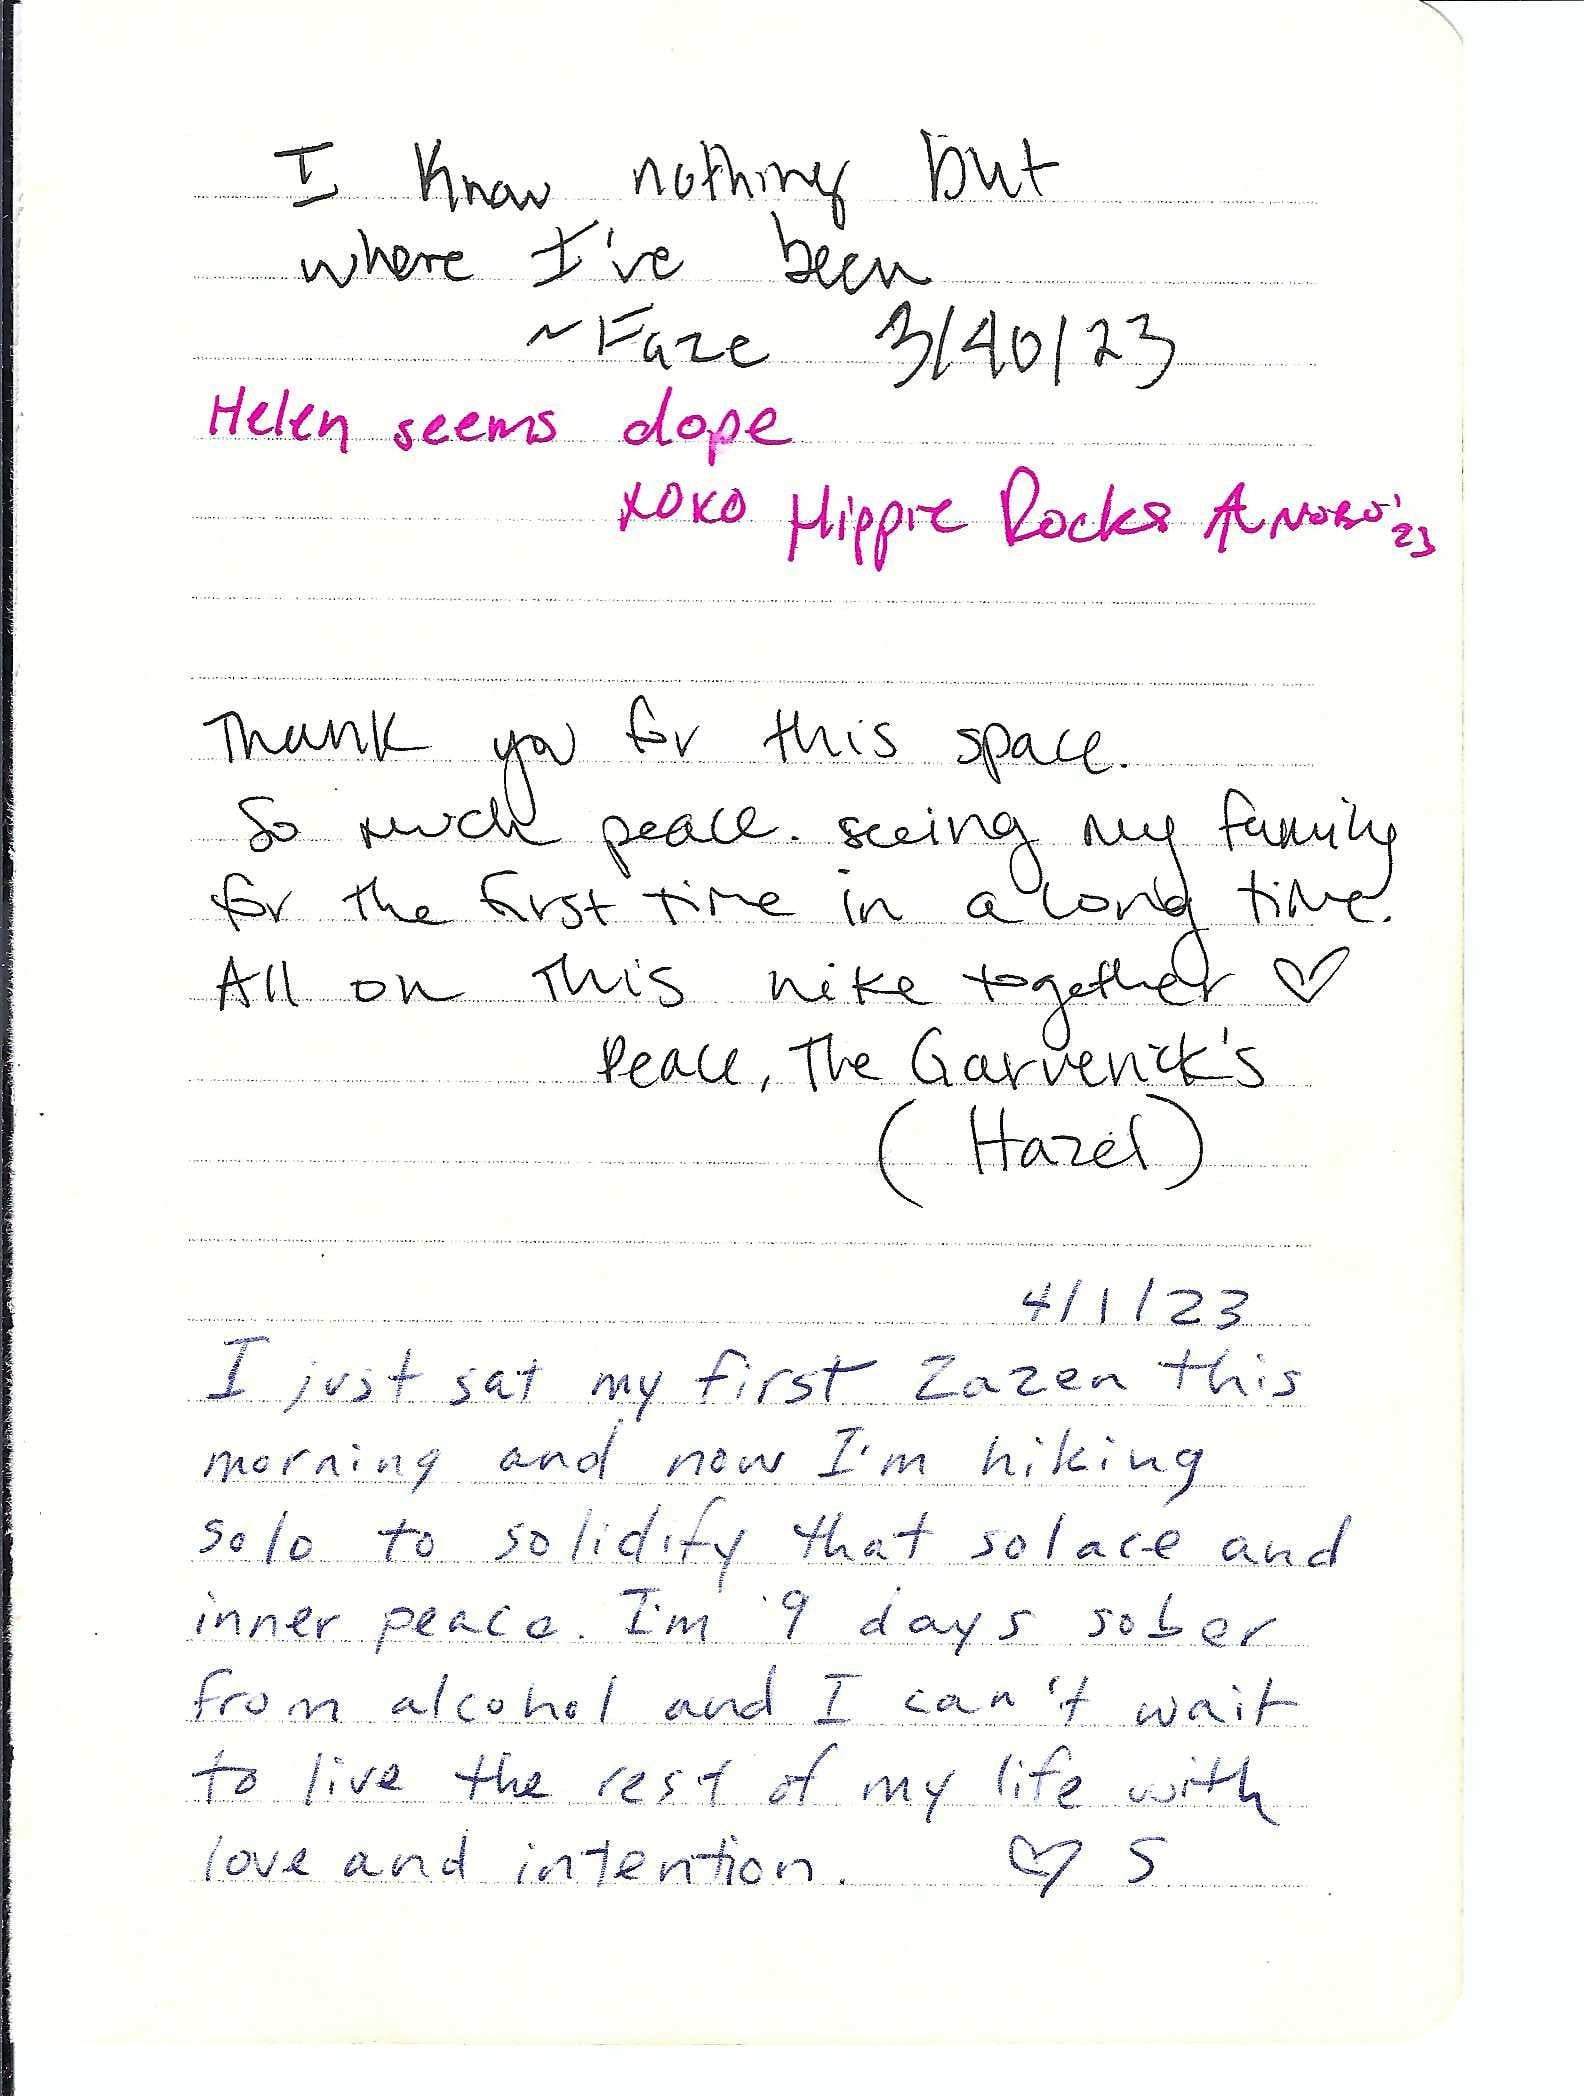 I Know nothing but
where I've been
~Faze 3/40/23
Helen seems dope
xoxo Hippie Rocks AT NOBO '23
Thank you for this space.
So much peace. seeing my family
for the first time in a long time.
All on this hike together ♡
Peace, The Garverick's
(Hazel)
4/1/23
I just sat my first Zazen this
morning and now I'm hiking
solo to solidify that solace and
inner peace. I'm 9 days sober
from alcohol and I can't wait
to live the rest of my life with
love and intention. ♡ S